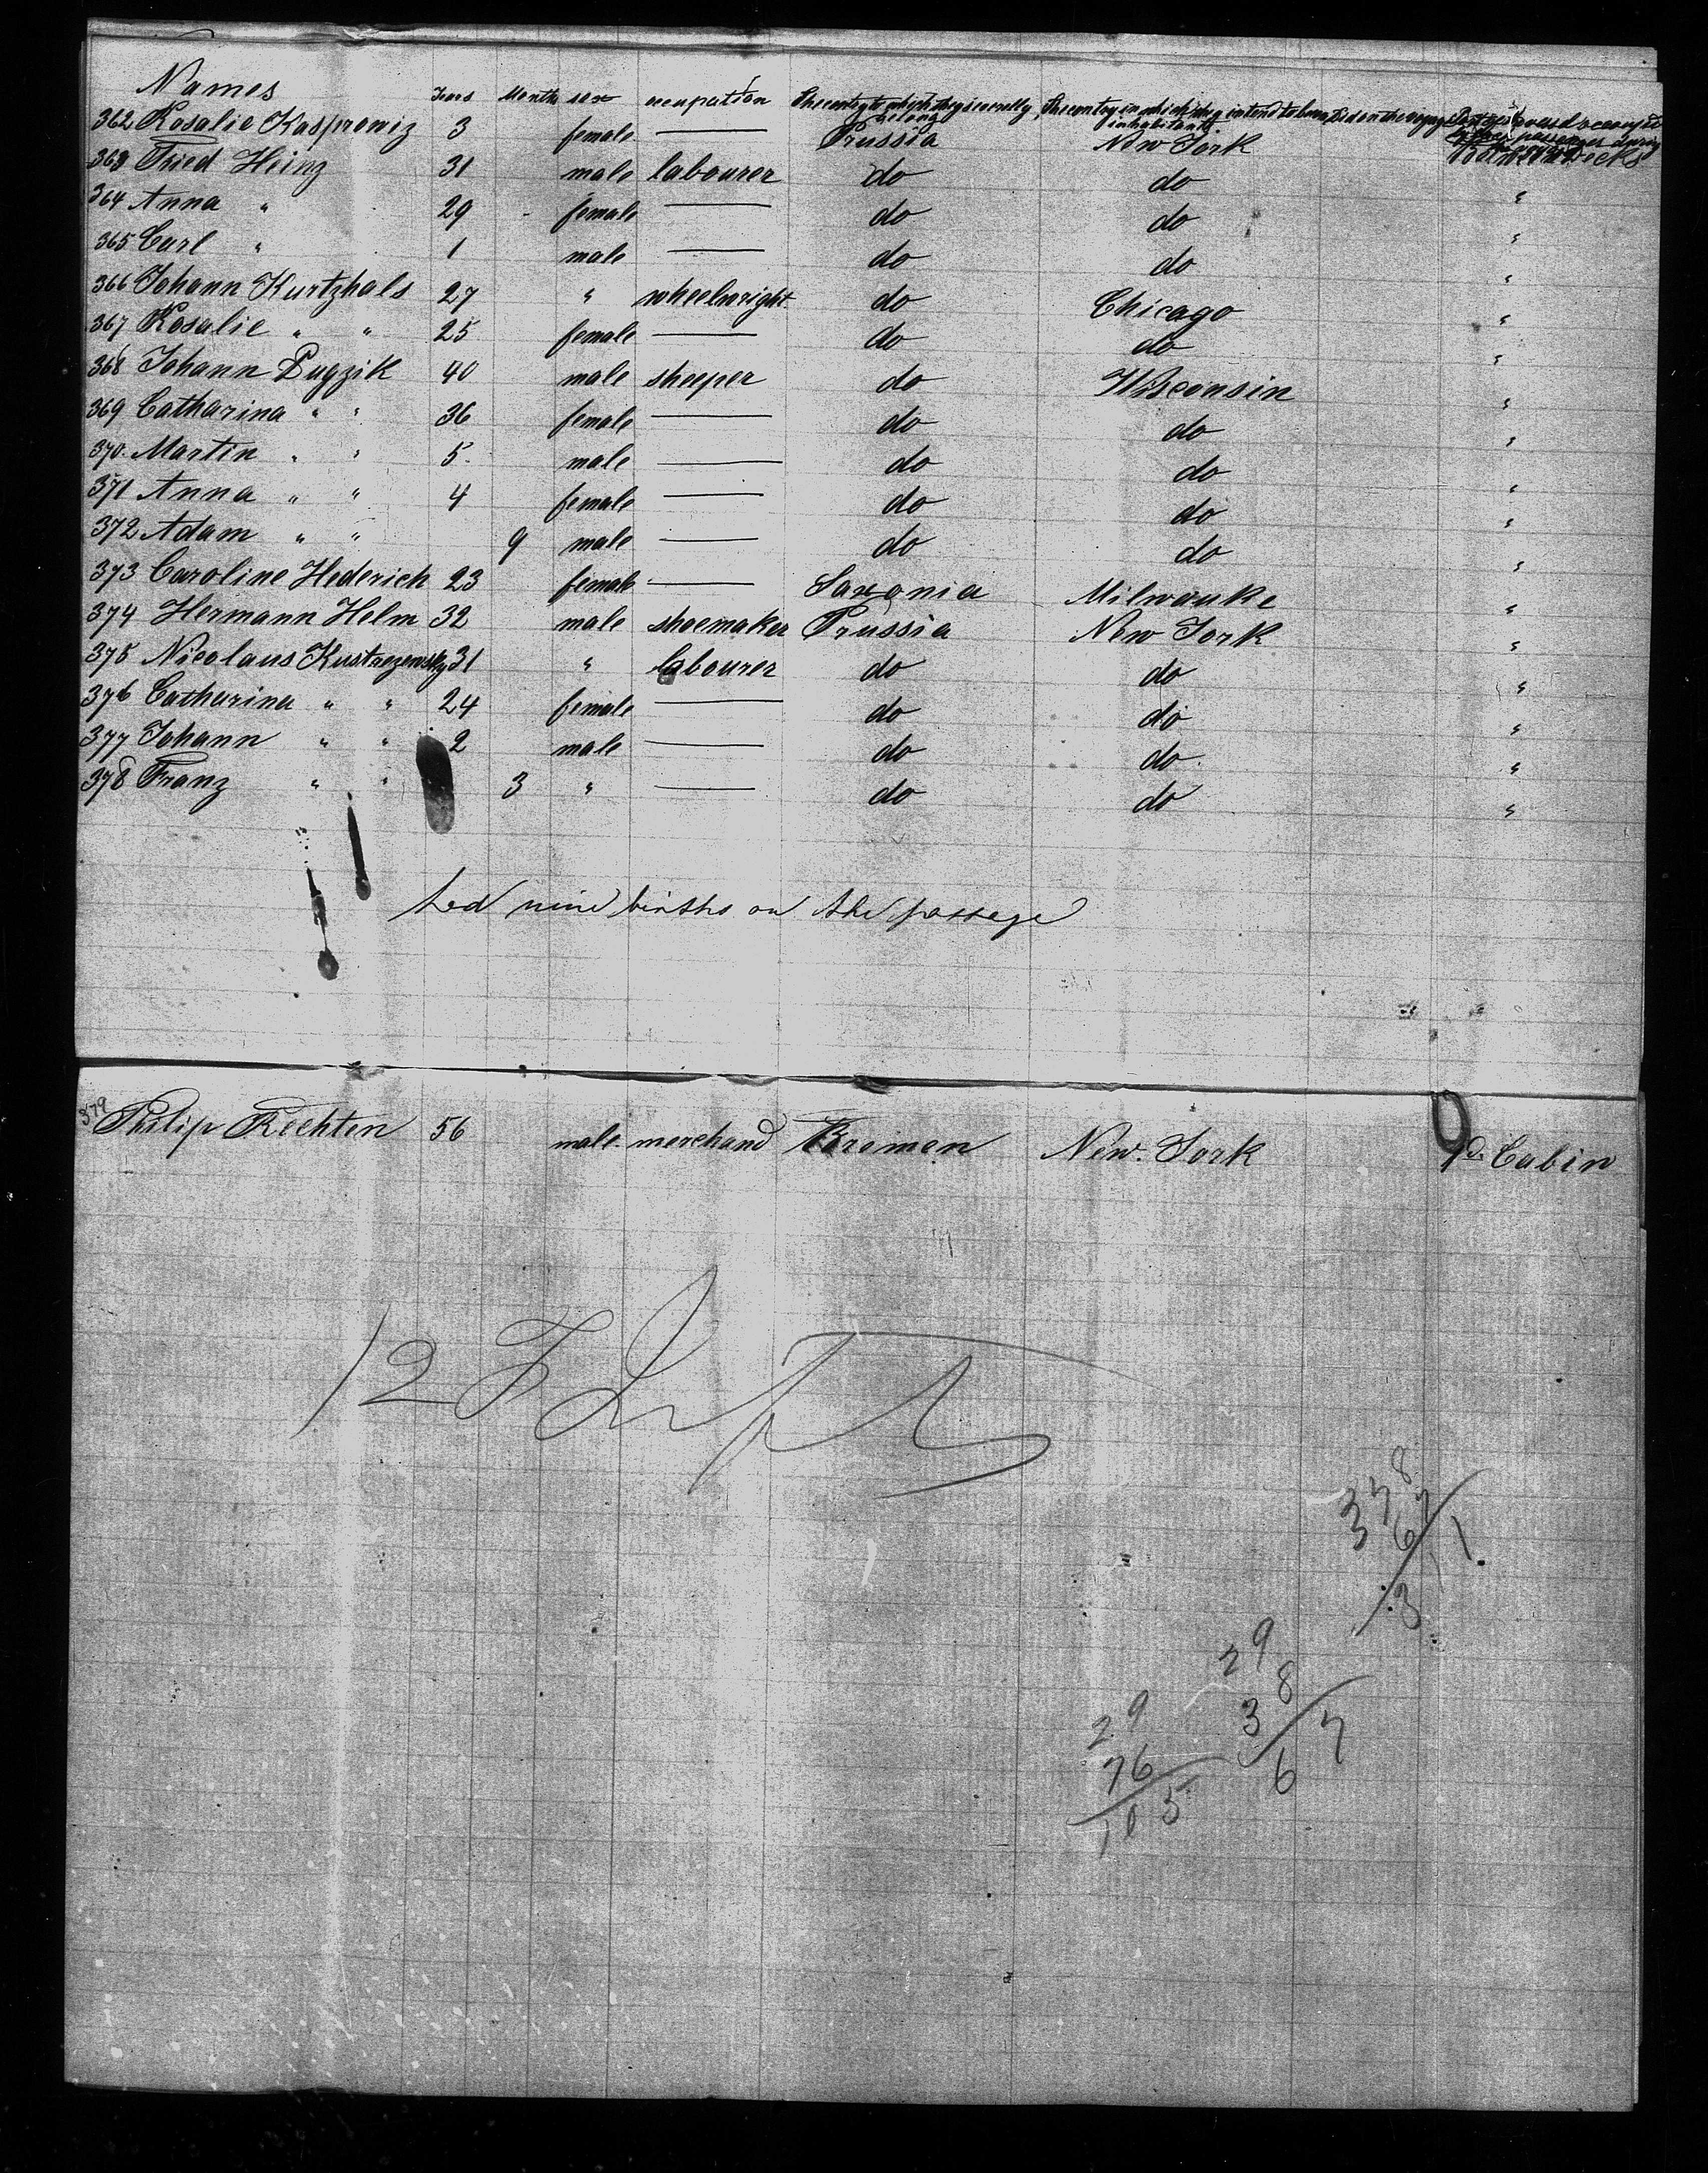 Names Years Months sex occupation The contry to which they severally belong The contry in which they intend to become inhabitants Died on the voyage
362 Rosalie Kasprowiz 3 female — Prussia New York
363 Fried Heinz 31 male labourer do do "
364 Anna " 29 female — do do "
365 Carl " 1 male — do do "
366 Johann Kurtzhals 27 " wheelwright do Chicago "
367 Rosalie " " 25 female — do do "
368 Johann Pugzik 40 male sheeper do Wisconsin "
369 Catharina " " 36 female — do do "
370. Martin " " 5. male — do do "
371 Anna " " 4 female — do do "
372 Adam " " 9 male — do do "
373 Caroline Hederich 23 female — Saxonia Milwauke "
374 Hermann Helm 32 male shoemaker Prussia New York "
375 Nicolaus 31 " labourer do do "
376 Catharina " " 24 female — do do "
377 Johann " " 2 male — do do "
378 Franz " " 3 " — do do "
nine births on the passage
379 Philip Rechten 56 male merchand Bremen New. York Cabin
12
378
67
311
29
38
67
29
76
105